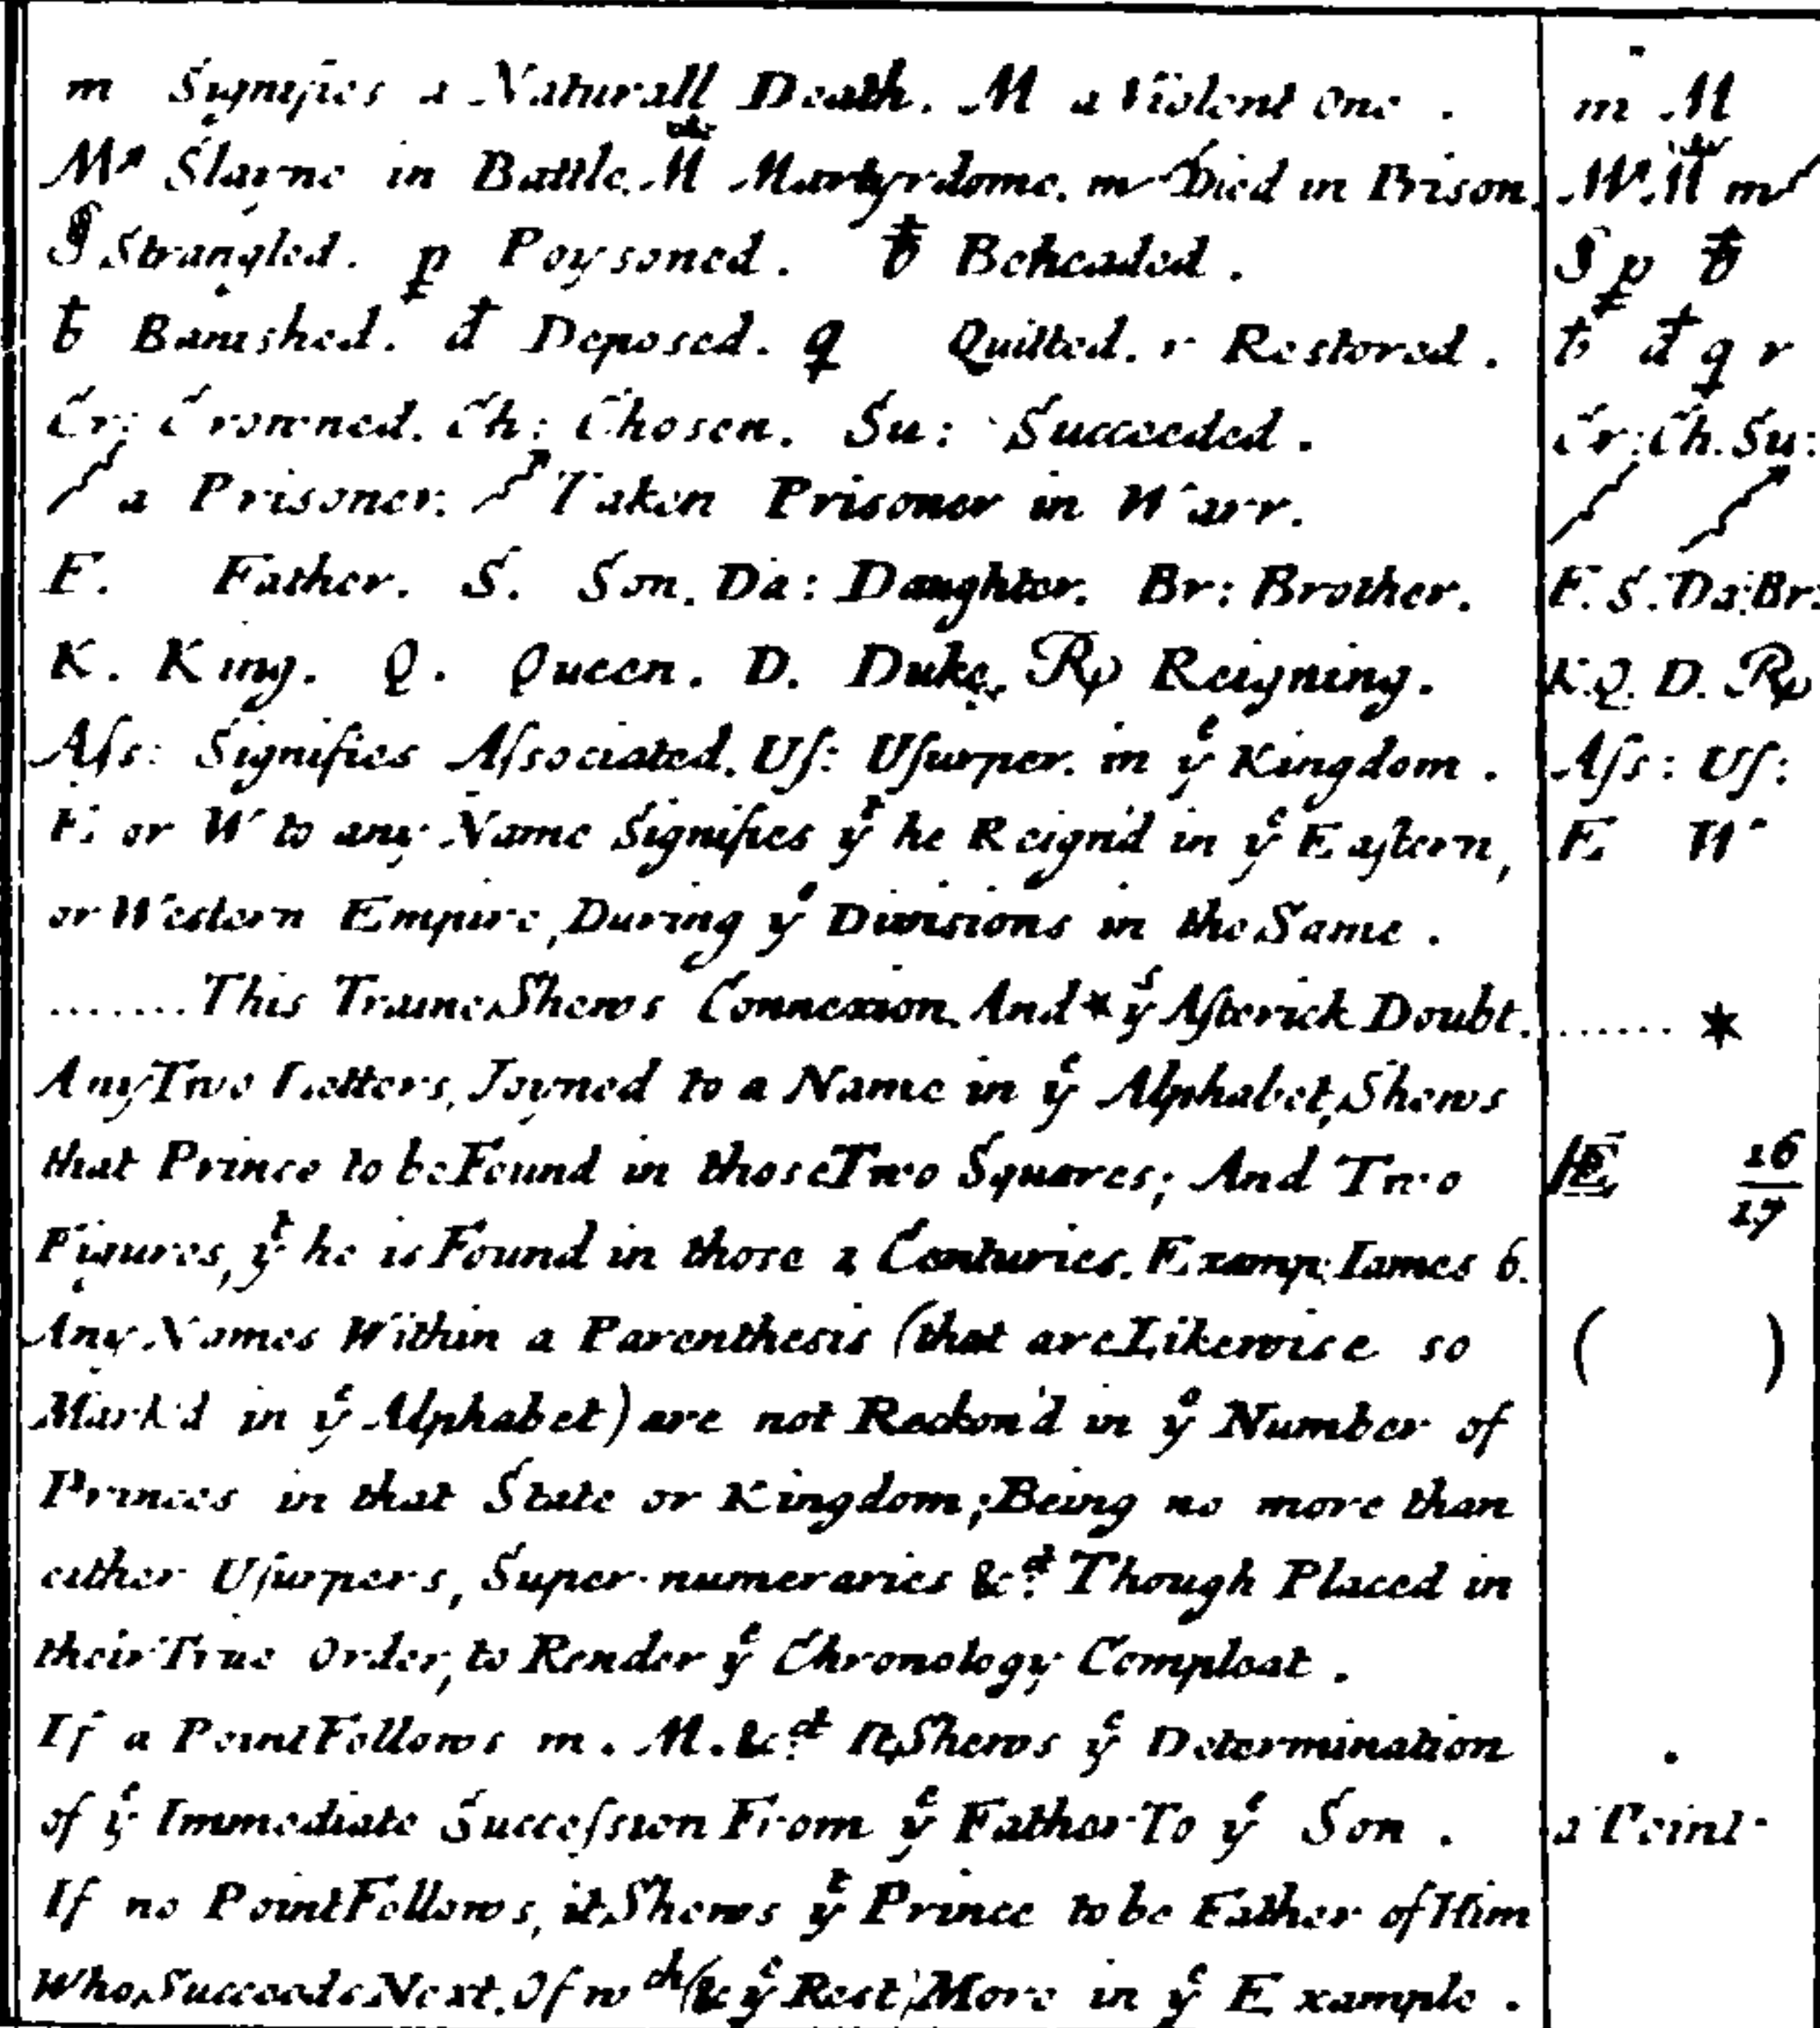 m Signifies a Naturall Death. M a Violent One . m M
M Slayne in Battle. M Martyrdome. m Died in Prison. M M m
S Strangled. p Poysoned. ƀ Beheaded . S p ƀ
ƀ Banished. đ Deposed. q Quitted. r Restored . ƀ đ q r
Cr: Crowned. Ch: Chosen. Su: Succeeded . Cr: Ch. Su:
a Prisoner. Taken Prisoner in Warr.
F. Father. S. Son. Da: Daughter. Br: Brother. F. S. Da: Br:
K. King. Q. Queen. D. Duke. R Reigning. K. Q. D. R
Aſs: Signifies Aſsociated. Uſ: Uſurper. in yͤ Kingdom . Aſs: Uſ:
E. or W to any Name Signifies yͭ he Reign'd in yͤ Eaſtern, E. W
or Western Empire, During yͤ Divisions in the Same .
....... This Traine Shews Connexion. And * yͤ Aſterick Doubt. ....... *
Any Two Letters, Joyned to a Name in yͤ Alphabet, Shews
that Prince to be Found in those Two Squares; And Two 16/17
Figures, yͭ he is Found in those 2 Centuries. Examp: Iames 6.
Any Names Within a Parenthesis (that are Likewise so ( )
Mark'd in yͤ Alphabet) are not Reckon'd in yͤ Number of
Princes in that State or Kingdom; Being no more than
either Uſurpers, Super-numeraries &c. Though Placed in
their True Order, to Render yͤ Chronology Compleat .
If a Point Follows m. M. &c. It Shews yͤ Determination .
of yͤ Immediate Succeſsion From yͤ Father To yͤ Son . a Point
If no Point Follows, it Shews yͭ Prince to be Father of Him
Who Succeeds Next. Of wᶜʰ (& yͤ Rest) More in yͤ Example .